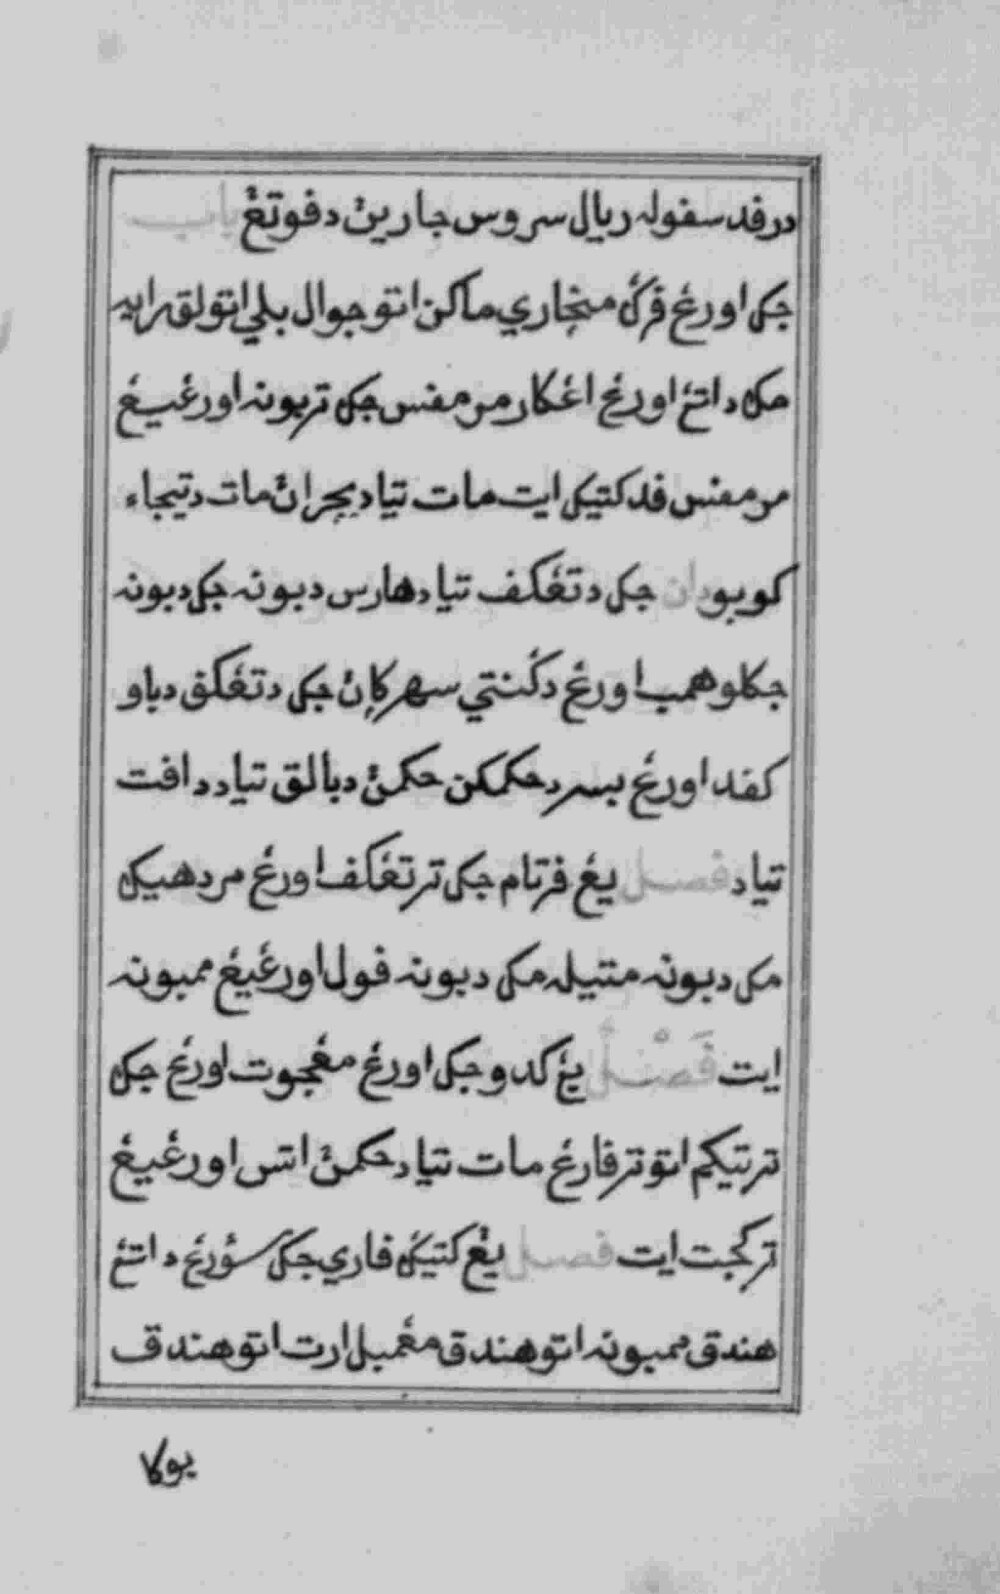 درفد سفوله ريال سروس جارين دفوتڠ باب
جک اورڠ فرݢي منچاري ماکن اتو جوال بلي اتو لق راٮه
مک داتڠ اورڠ اڠکار من مفس جک تربونه اورڠ يڠ
من مفس فد کتيک ايت مات تياد بچراڽ مات دتيجاء
کوبو دان جک دتڠکف تياد هارس دبونه جک دبونه
جکلو همب اورڠ دݢنتي سهرݢاڽ جک دتڠکق دباو
کفد اورڠ بسر دحکمکن حکمڽ دبالق تياد دافت
تياد فصل يڠ فرتام جک ترتڠکف اورڠ مردهيک
مک دبونه منتيله مک دبونه فول اورڠ يڠ ممبونه
ايت فصل يڠ کدو جک اورڠ مڠچوت اورڠ جک
ترتيکم اتو ترفارڠ مات تياد حکمڽ اتس اورڠ يڠ
ترکجت ايت فصل يڠ کتيݢ فاري جک سؤرڠ داتڠ
هندق ممبونه اتو هندق مڠمبل ارت اتو هندق
بوکا